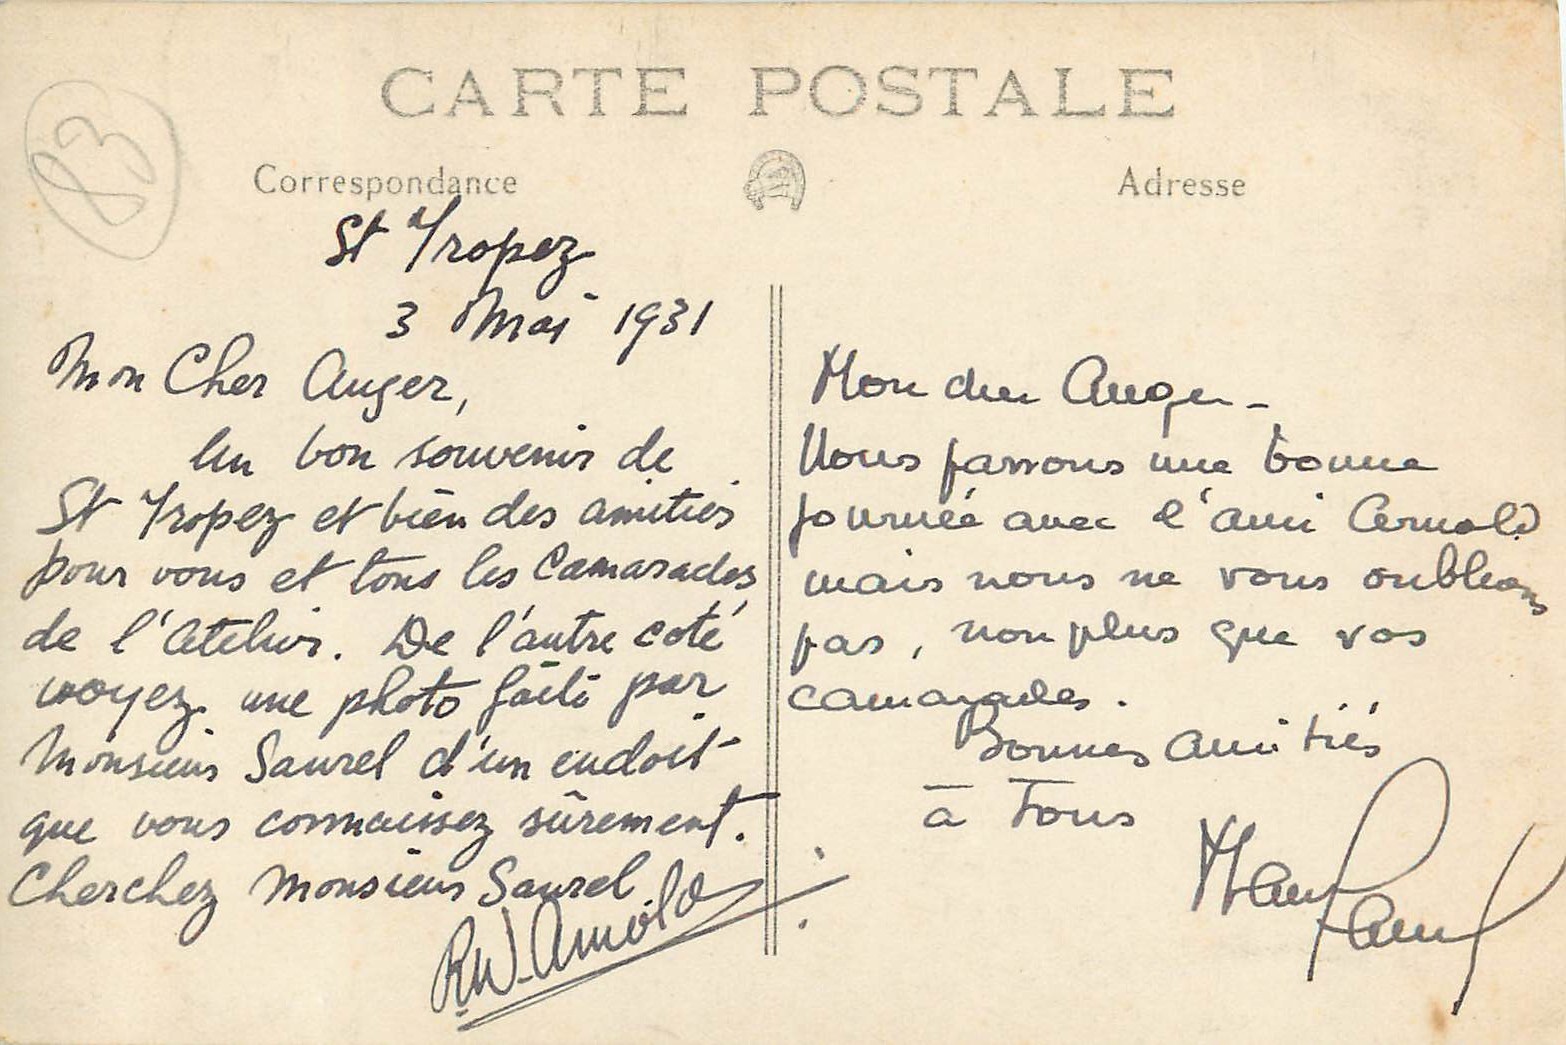 83
CARTE POSTALE
Correspondance
Adresse
St Tropez
3 Mai 1931
Mon Cher Auger,
Un bon souvenir de
St Tropez et bien des amitiés
pour vous et tous les Camarades
de l'Atelier. De l'autre coté
voyez une photo faite par
Monsieur Saurel d'un endoit
que vous connaissez sûrement.
Cherchez Monsieur Saurel
R.W. Arnold
Mon cher Auger -
Nous passons une bonne
journée avec l'ami Arnold
mais nous ne vous oublions
pas, non plus que vos
camarades.
Bonnes amitiés
à Tous